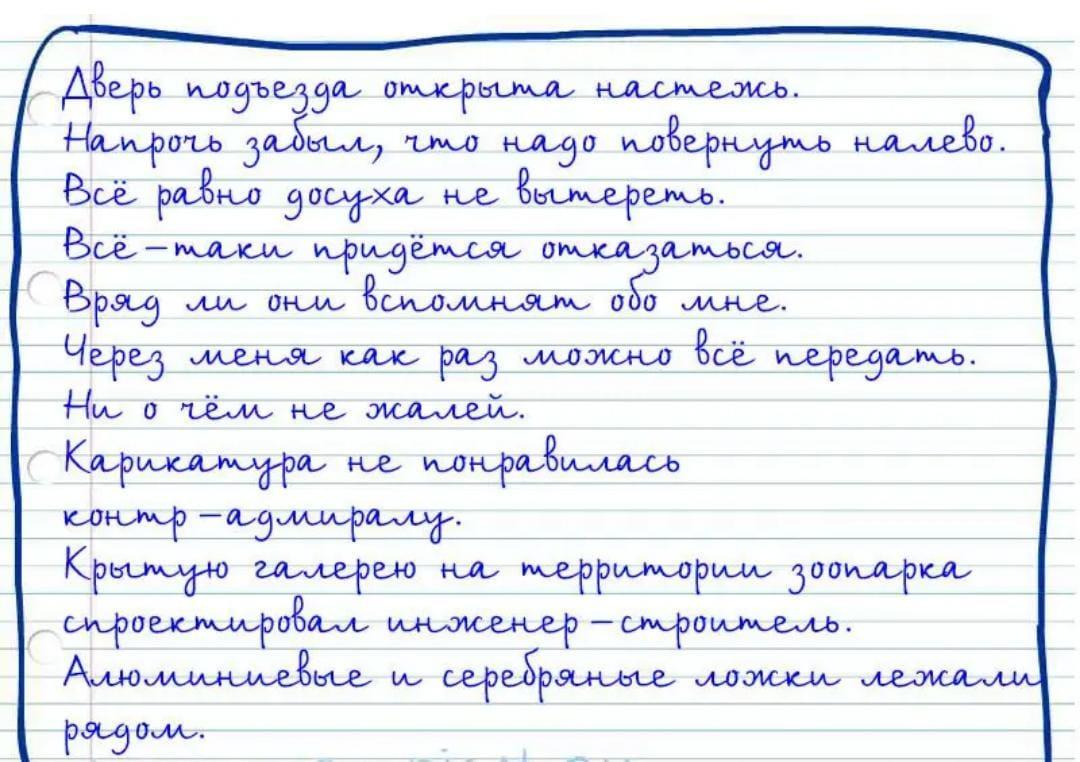 Дверь подъезда открыта настежь.
Напрочь забыл, что надо повернуть налево.
Всё равно досуха не вытереть.
Всё-таки придётся отказаться.
Вряд ли они вспомнят обо мне.
Через меня как раз можно всё передать.
Ни о чём не жалей.
Карикатура не понравилась
контр-адмиралу.
Крытую галерею на территории зоопарка
спроектировал инженер-строитель.
Алюминиевые и серебряные ложки лежали
рядом.